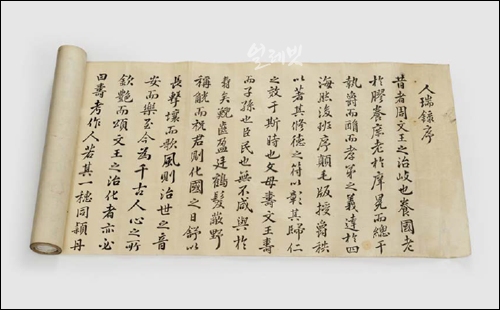 人瑞錄序
昔者周文王之治岐也養國老
於膠養庶老於庠冕而總干
執爵而酳而孝弟之義達於四
海然後班序顚毛版授爵秩
以若其修德之符以彰其歸仁
之效于斯時也父母壽文王壽
而子孫也臣民也無不咸與於
壽矣觀匡盈廷鶴髮蔽野
稱觥而祝君則化國之日舒以
長擊壤而歌風則治世之音
安而樂至今為千古人心之所
欽艶而頌文王之治化者亦必
曰壽考作人若其一穗同穎丹